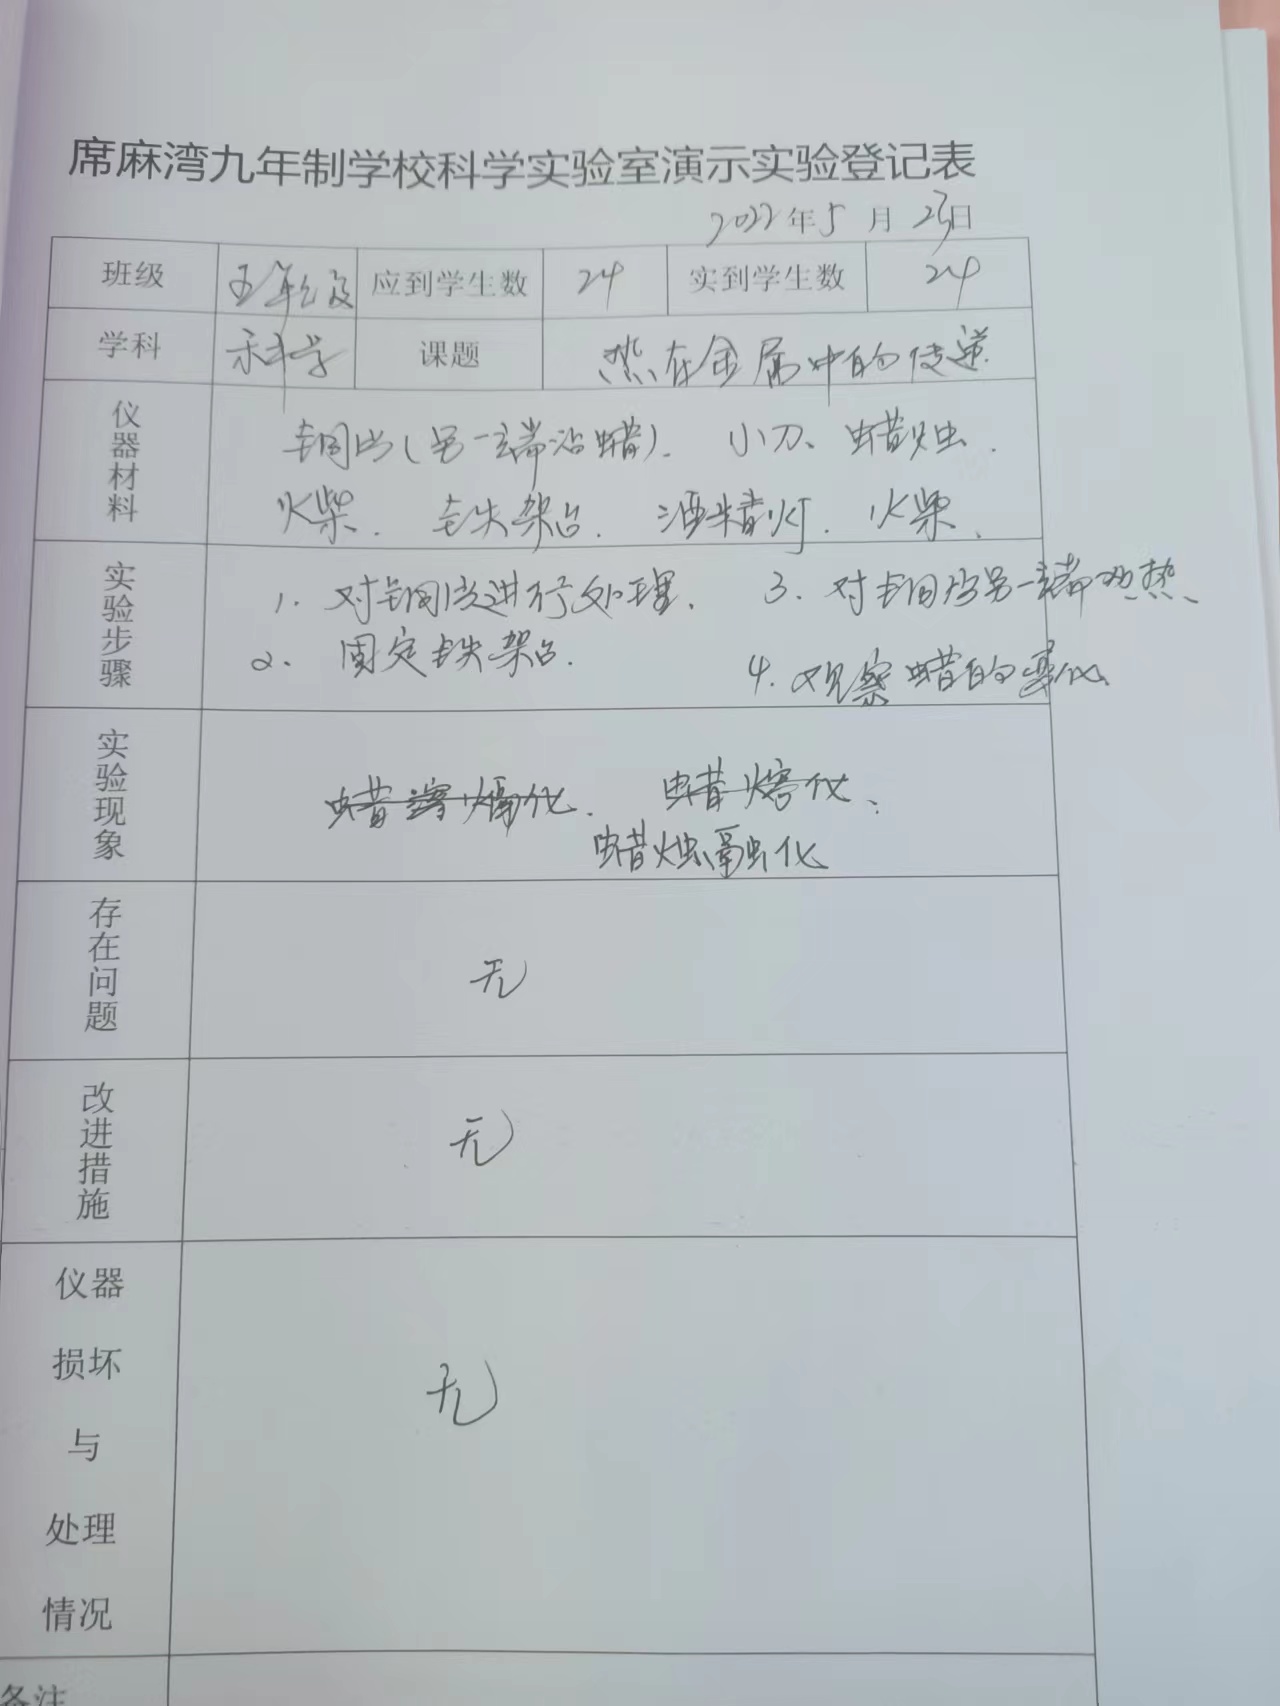 席麻湾九年制学校科学实验室演示实验登记表
2022年5月23日
班级 五年级 应到学生数 24 实到学生数 24
学科 科学 课题 热在金属中的传递
仪器材料
铜丝(另一端沾蜡)、小刀、蜡烛、
火柴、铁架台、酒精灯、火柴、
实验步骤
1. 对铜丝进行处理. 3. 对铜丝另一端加热、
2、固定铁架台. 4. 观察蜡的变化、
实验现象
蜡熔化、
蜡烛融化
存在问题
无
改进措施
无
仪器
损坏
与
处理
情况
无
备注